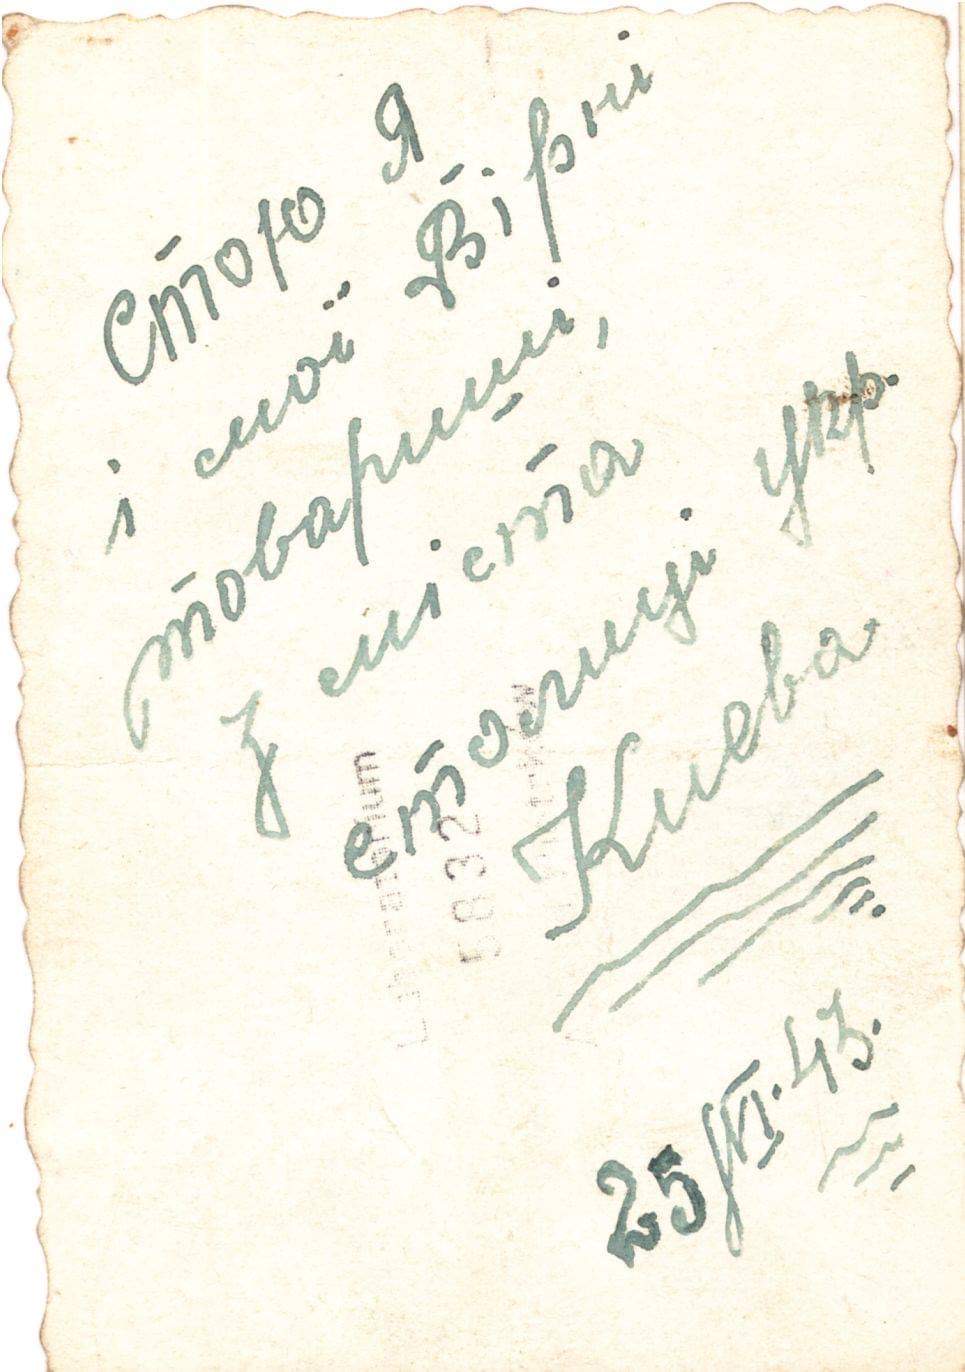 Стою Я
і мої Вірні
товариші,
з міста
столиці Укр.
Києва.
25/VI.43.
Laboratorium
5832